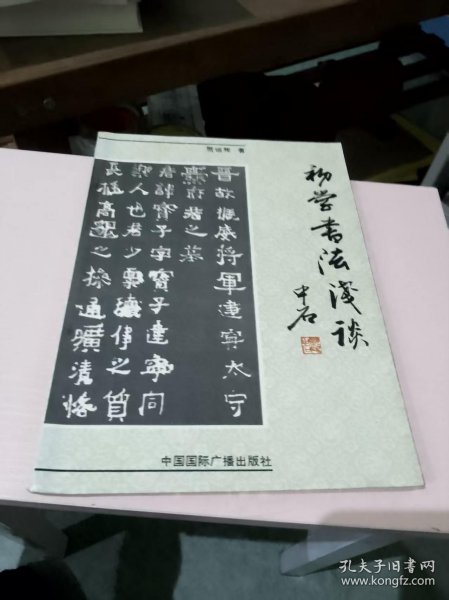 著
初学书法浅谈
中石
晋故振威将軍建寧太守
爨府君之墓
君諱寶子字寶子建寧同
樂人也君少禀瓌偉之質
長挺高邈之操通曠清恪
中国国际广播出版社
孔夫子旧书网
www.kongfz.com